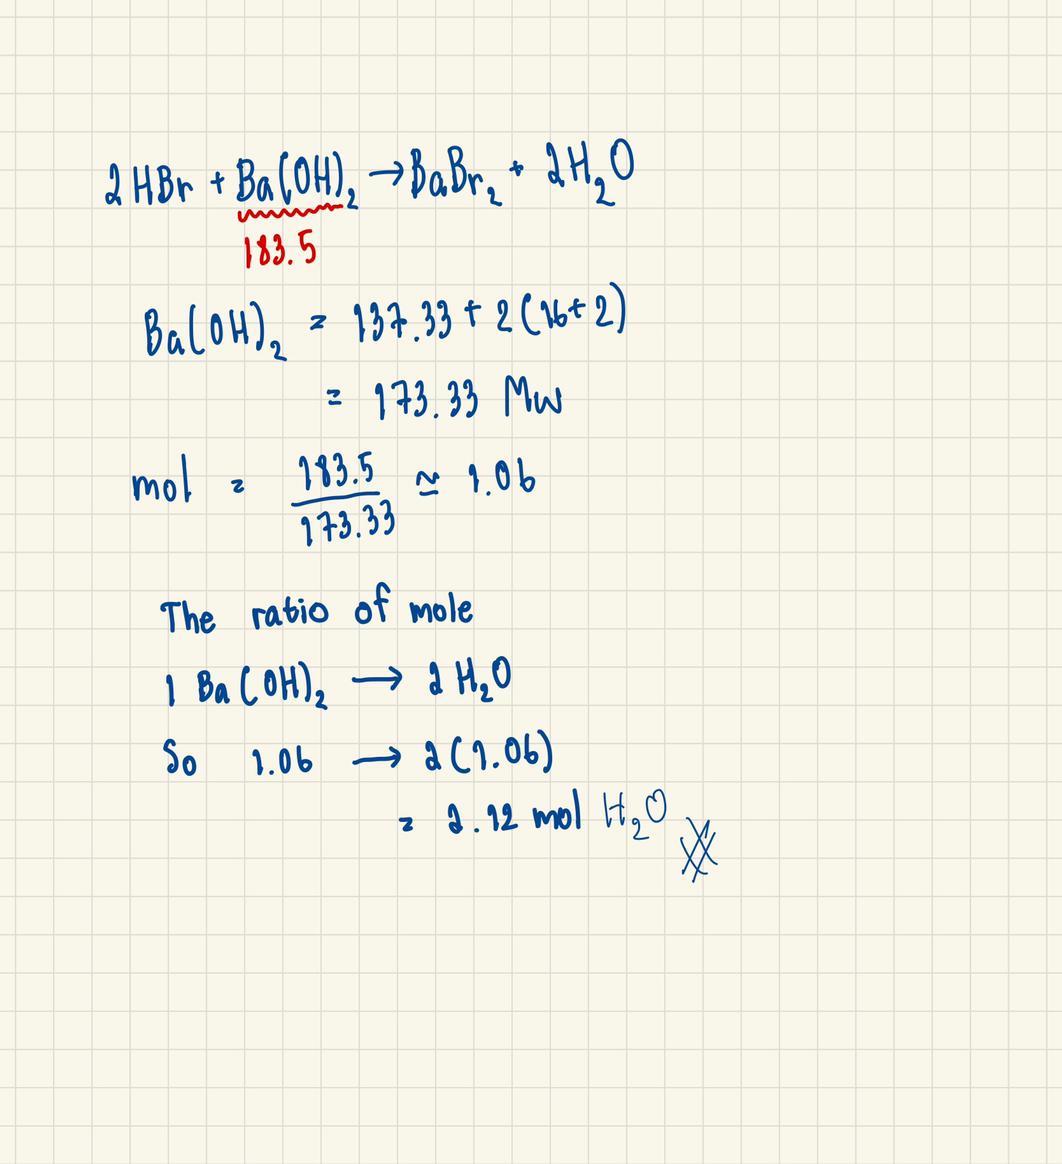 2HBr + Ba(OH)₂ → BaBr₂ + 2H₂O
183.5
Ba(OH)₂ = 137.33 + 2(16+2)
= 173.33 Mw
mol = 183.5/173.33 ≃ 1.06
The ratio of mole
1 Ba(OH)₂ → 2 H₂O
So 1.06 → 2(1.06)
= 2.12 mol H₂O